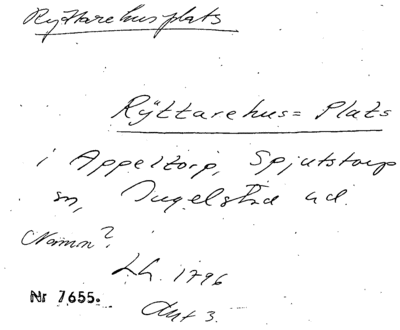 Ryttarehusplats
Rÿttarehus= Plats
i Appeltorp, Spjutstorps
sn, Ingelstad hd.
(Namn?
LA. 1796
Nr 7655.
Akt 3.